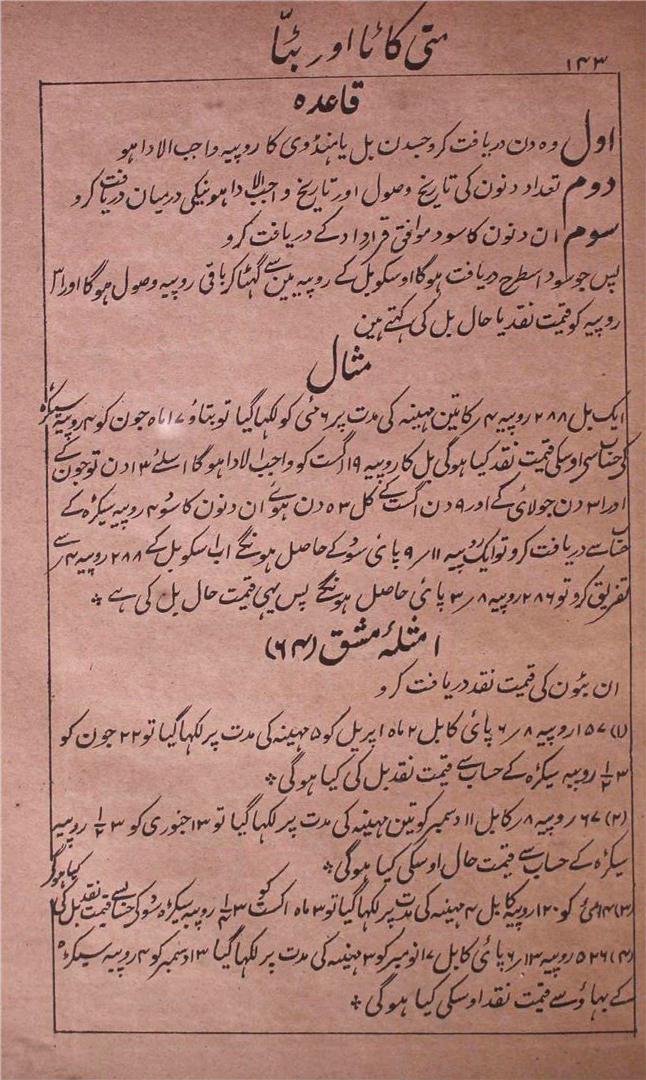 متی کاٹا اور بٹّا
۱۴۳
قاعدہ
اول وہ دن دریافت کرو جسدن بل یا ہنڈوی کا روپیہ واجب الادا ہو
دوم تعداد دنون کی تاریخ وصول اور تاریخ واجب الادا ہونیکی درمیان دریافت کرو
سوم ان دنون کا سود موافق قرارداد کے دریافت کرو
پس جو سود اسطرح دریافت ہوگا اوسکو بل کے روپیہ مین سے گھٹا کر باقی روپیہ وصول ہوگا اور اس
روپیہ کو قیمت نقد یا حال بل کی کہتے ہین
مثال
ایک بل ۲۸۸ روپیہ ۴؍ کا تین مہینہ کی مدت پر ۶ مئی کو لکھا گیا تو بتاؤ ۱۷ ماہ جون کو ۴ روپیہ سیکڑہ
کی حساب سی اوسکی قیمت نقد کیا ہوگی بل کا روپیہ ۹ اگست کو واجب الادا ہوگا اسلئے ۱۳ دن تو جون کے
اور ۳۱ دن جولائی کے اور ۹ دن اگست کے کل ۵۳ دن ہوئے ان دنون کا سود ۴ روپیہ سیکڑہ کے
حساب سے دریافت کرو تو ایک روپیہ ۱۱؍ ۹ پائی سود کے حاصل ہونگے اب اسکو بل کے ۲۸۸ روپیہ ۴؍ سے
تفریق کرو تو ۲۸۶ روپیہ ۸؍ ۳ پائی حاصل ہونگے پس یہی قیمت حال بل کی ہے ٭
امثلۂ مشق (۶۴)
ان بٹون کی قیمت نقد دریافت کرو
(۱) ۱۵۷ روپیہ ۸؍ ۶ پائی کا بل ۲ ماہ اپریل کو ۵ مہینہ کی مدت پر لکھا گیا تو ۲۲ جون کو
۳ ۱/۲ روپیہ سیکڑہ کے حساب سے قیمت نقد بل کی کیا ہوگی ٭
(۲) ۶۷ روپیہ ۸؍ کا بل ۱۱ دسمبر کو تین مہینہ کی مدت پر لکھا گیا تو ۱۳ جنوری کو ۳ ۱/۲ روپیہ
سیکڑہ کے حساب سے قیمت حال اوسکی کیا ہوگی ٭
(۳) ۱۴ مئی کو ۱۲۰ روپیہ کا بل ۴ مہینہ کی مدت پر لکھا گیا تو ۳ ماہ اگست کو ۳ ۱/۲ روپیہ سیکڑہ سود کی حساب سے قیمت نقد بل کی کیا ہوگی
(۴) ۵۲۶ روپیہ ۱۳؍ ۶ پائی کا بل ۱۷ نومبر کو ۳ مہینہ کی مدت پر لکھا گیا ۱۳ دسمبر کو ۴ روپیہ سیکڑہ
کے بھاؤ سے قیمت نقد اوسکی کیا ہوگی ٭